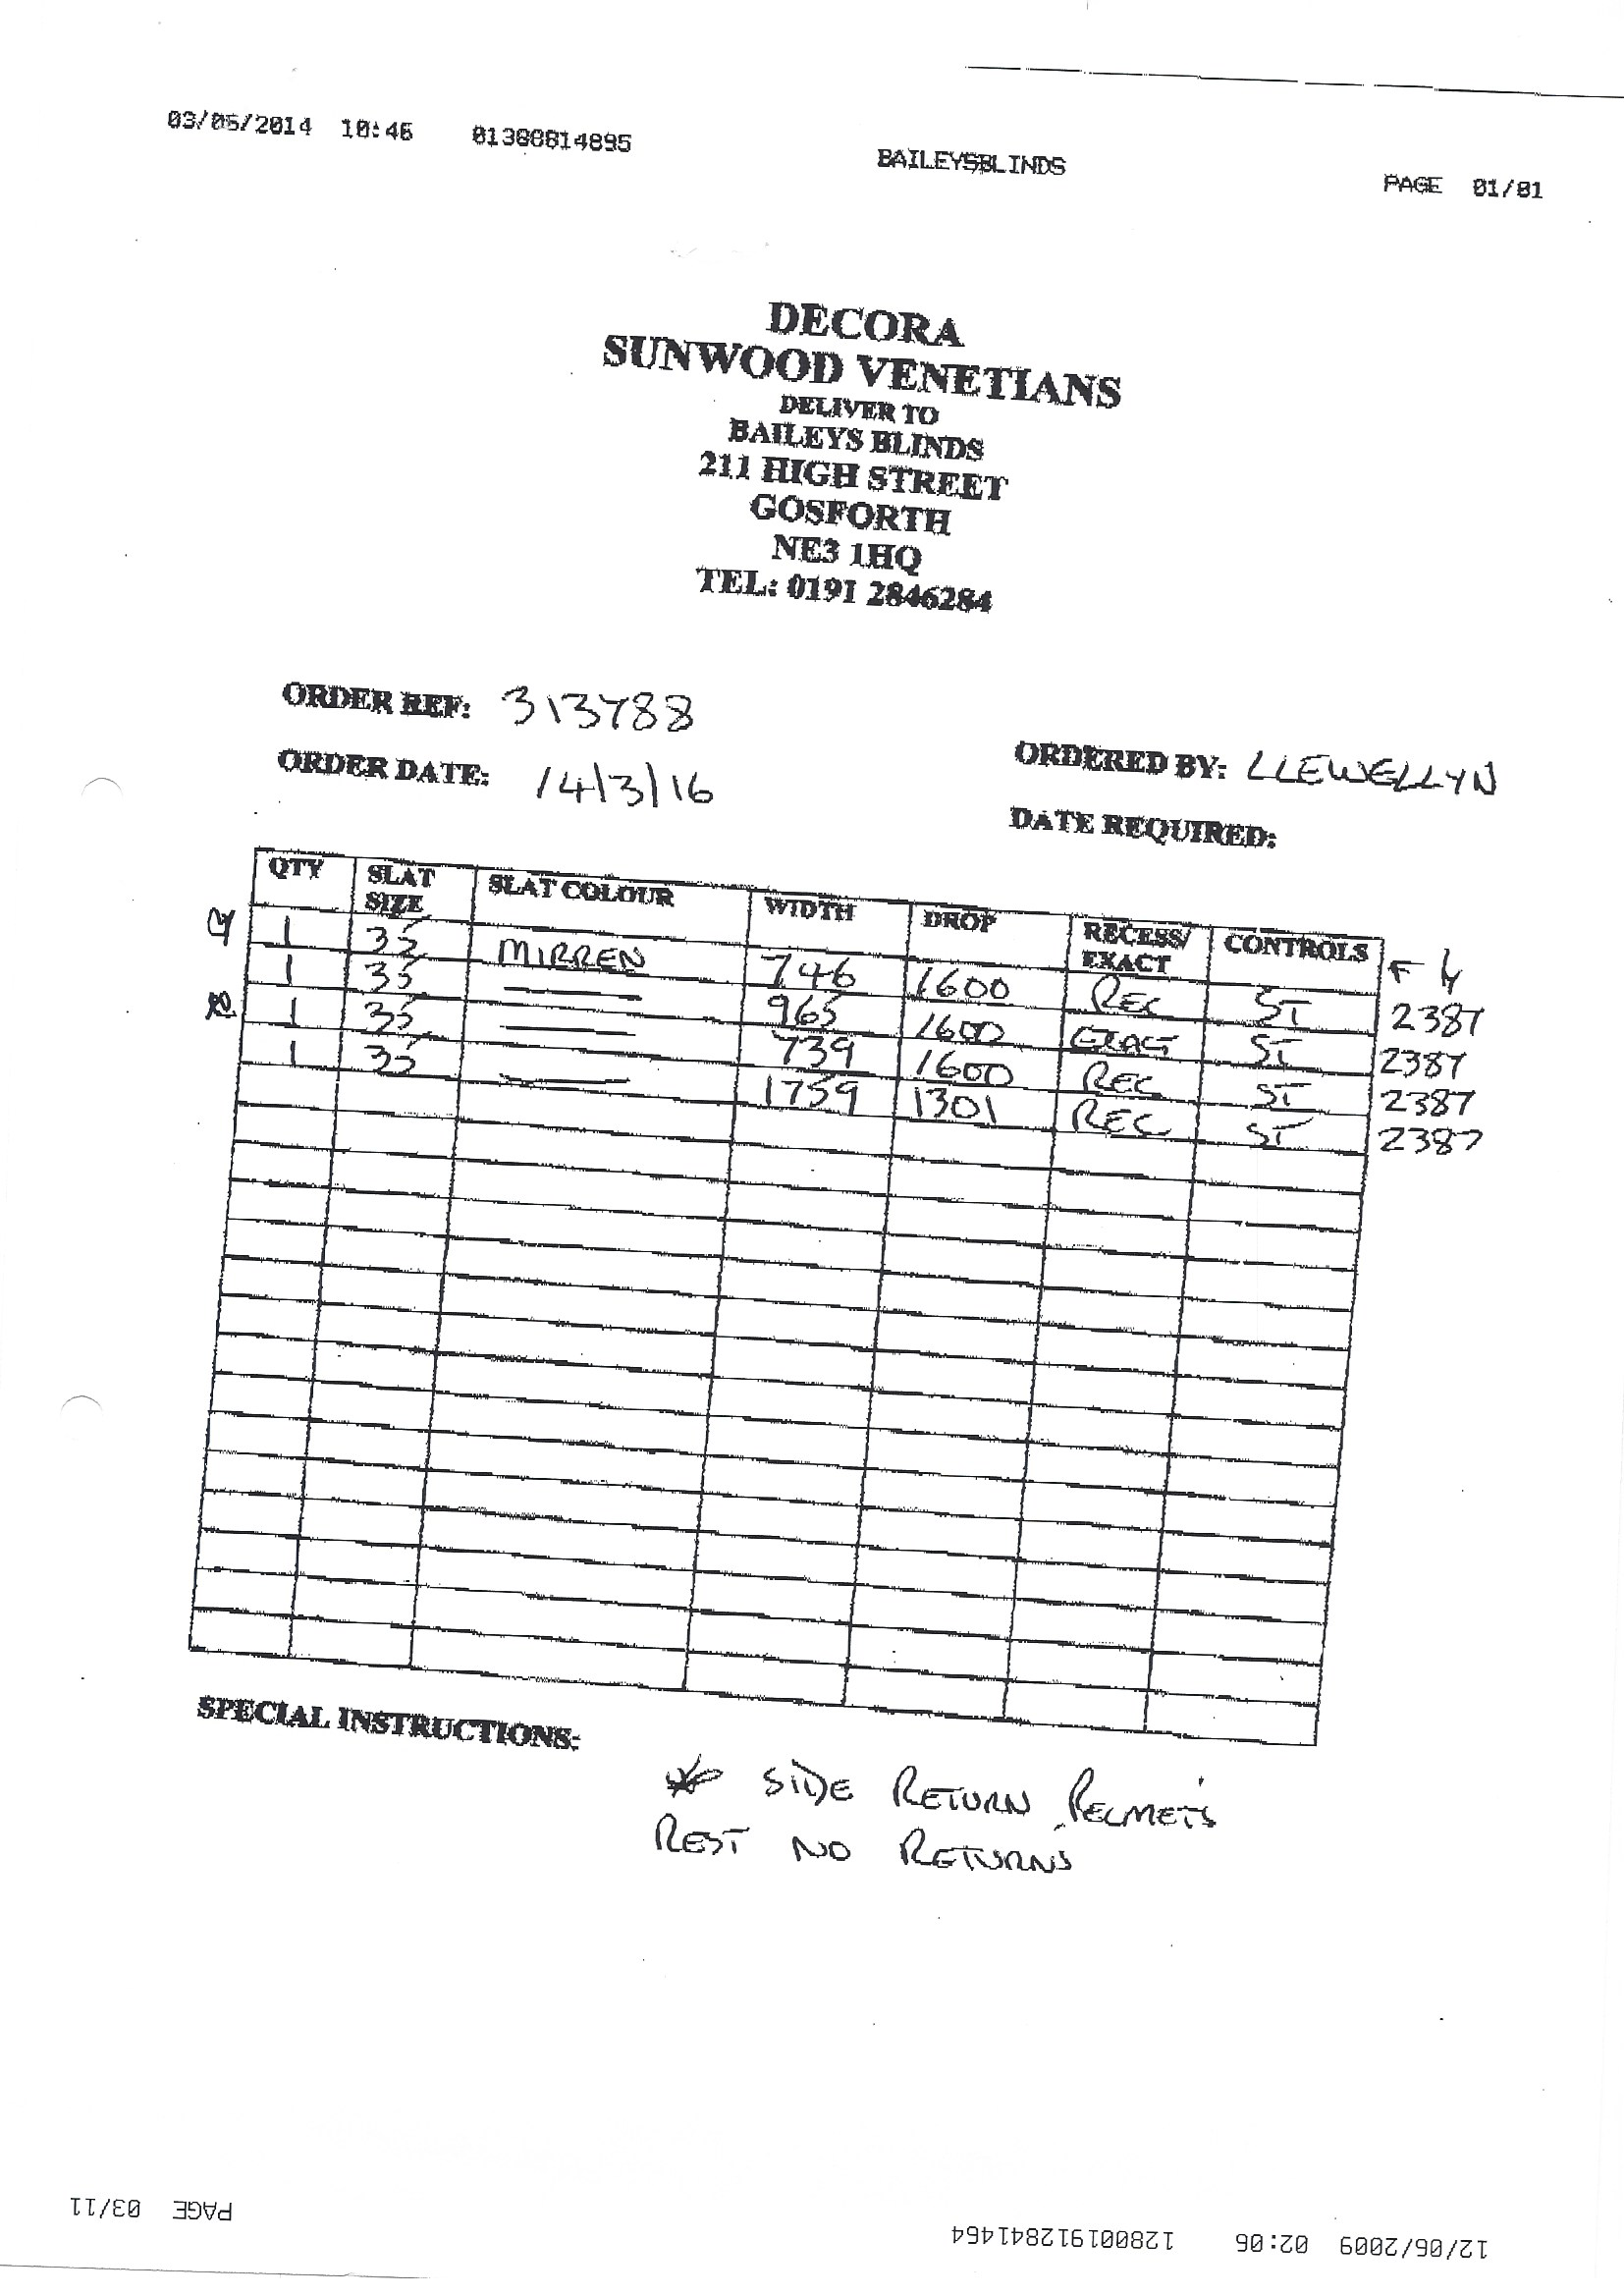 03/06/2014 10:46 01388814895 BAILEYSBLINDS PAGE 01/01
DECORA
SUNWOOD VENETIANS
DELIVER TO
BAILEYS BLINDS
211 HIGH STREET
GOSFORTH
NE3 1HQ
TEL: 0191 2846284
ORDER REF: 313788
ORDERED BY: LLEWELLYN
ORDER DATE: 14/3/16
DATE REQUIRED:
QTY SLAT SIZE SLAT COLOUR WIDTH DROP RECESS/ EXACT CONTROLS
1 35 MIRREN 746 1600 REC ST 2387
1 35 965 1600 EXACT ST 2387
1 35 739 1600 REC ST 2387
1 35 1759 1301 REC ST 2387
SPECIAL INSTRUCTIONS:
* SIDE RETURN PELMETS
REST NO RETURNS
12/06/2009 02:06 128001912841464 PAGE 03/11